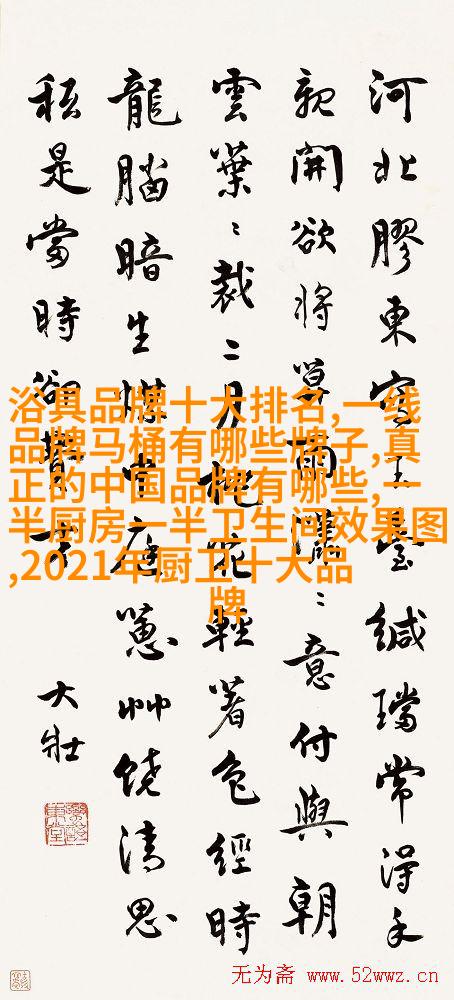 河北膠東寫室緘璫常淂手
親開欲將意付與朝
雲葉〻裁二月花輕著色經時
龍腦暗生中庭蕙艸饒清思
秖是當時卻
大壯
浴具品牌十大排名,一线
品牌马桶有哪些牌子,真
正的中国品牌有哪些,一
半厨房一半卫生间效果图
,2021年厨卫十大品
牌
无为斋 www.52wwz.cn